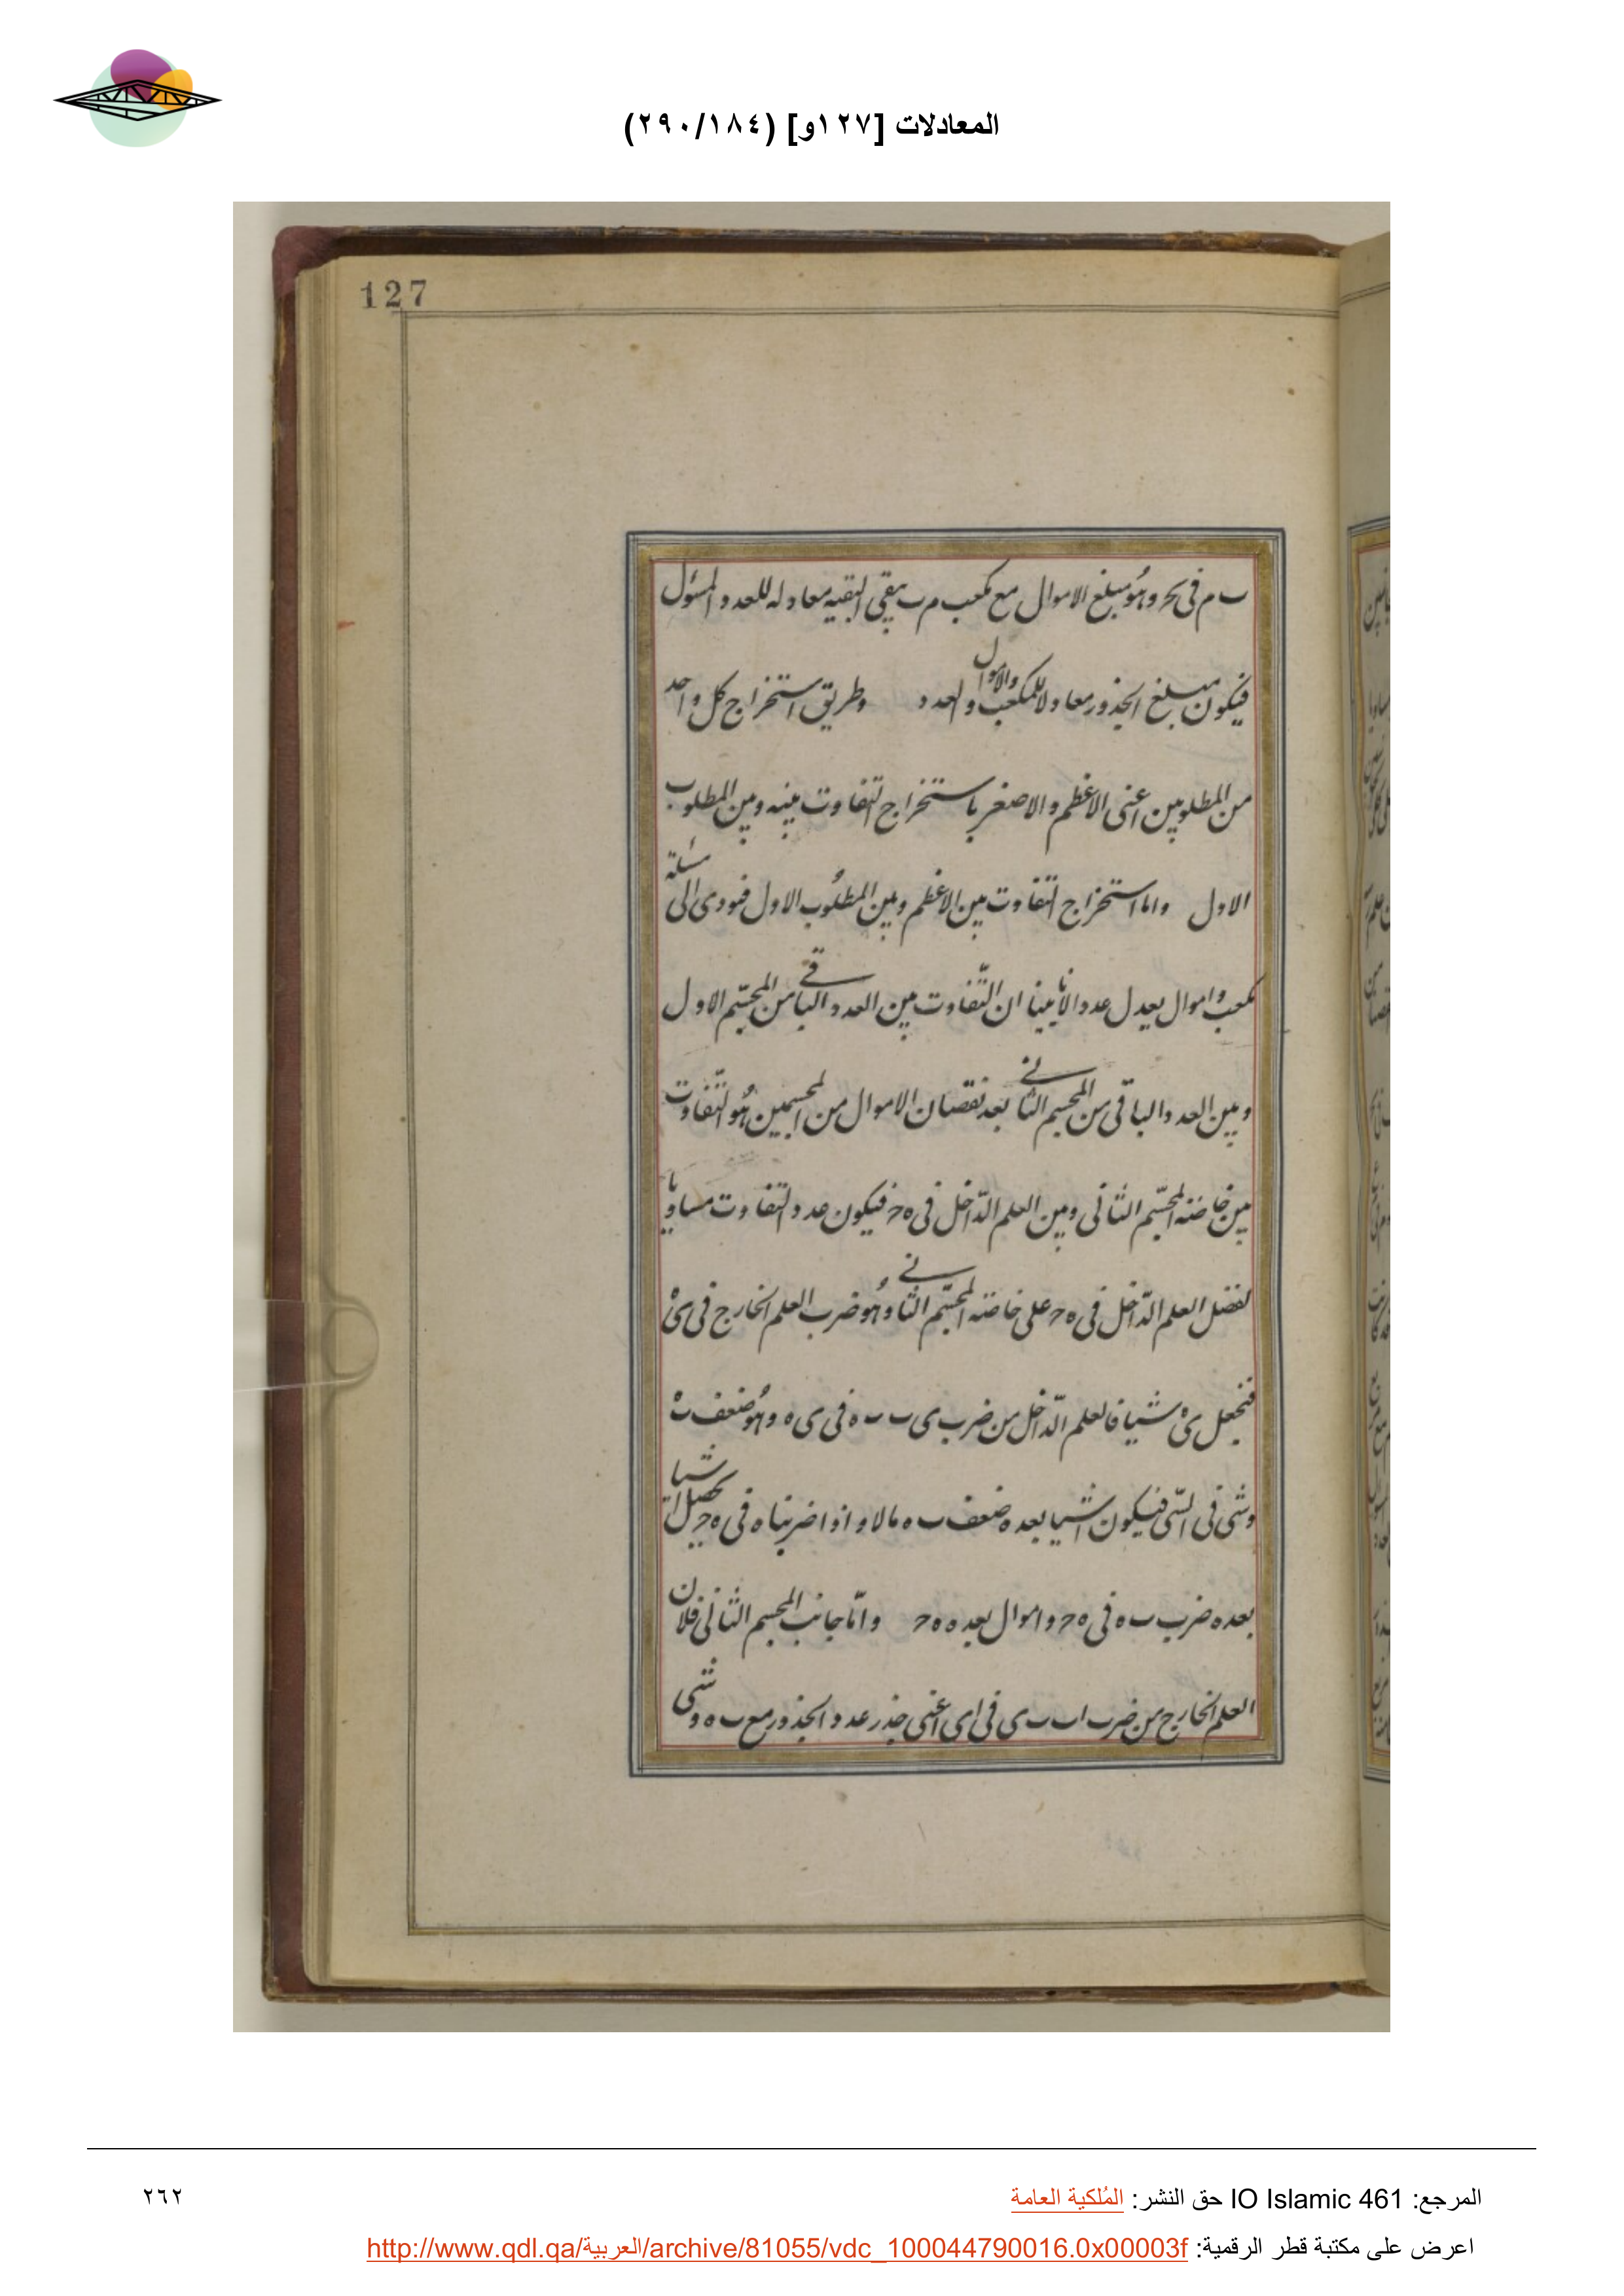 المعادلات [١٢٧و] (٢٩٠/١٨٤)
127
ب م فى حر وهو مبلغ الاموال مع مكعب م ب يبقى البقيه معادله للعدد المسئول
فيكون مبلغ الجذور معادلا للمكعب والاموال والعدد وطريق استخراج كل واحد
من المطلوبين اعنى الاعظم والاصغر باستخراج التفاوت بينه وبين المطلوب
الاول واما استخراج التفاوت بين الاعظم وبين المطلوب الاول فيودى الى مسئلة
مكعب واموال يعدل عددا لانا بينا ان التفاوت بين العدد الباقى من المجسم الاول
وبين العدد الباقى من المجسم الثانى بعد نقصان الاموال من المجسمين هو التفاوت
بين خاصته المجسم الثانى وبين العلم الداخل فى ه ح فيكون عدد التفاوت مساويا
لفضل العلم الداخل فى ه ح على خاصته المجسم الثانى وهو ضرب العلم الخارج فى ى ه
فنجعل ى ه شيا فالعلم الداخل من ضرب ى ب ب ه فى ى ه وهو ضعف ب ه
وشى فى الشى فيكون اشيا بعده ضعف ب ه مالا واذا ضربناه فى ه ح يحصل اشيا
بعده ضرب ب ه فى ه ح واموال بعده ه ح واما جانب المجسم الثانى فلان
العلم الخارج من ضرب ا ب ب ى فى اى اعنى جذر عدد الجذور مع ب ه وشى
المرجع: IO Islamic 461 حق النشر: المُلكية العامة
٢٦٢
اعرض على مكتبة قطر الرقمية: http://www.qdl.qa/العربية/archive/81055/vdc_100044790016.0x00003f